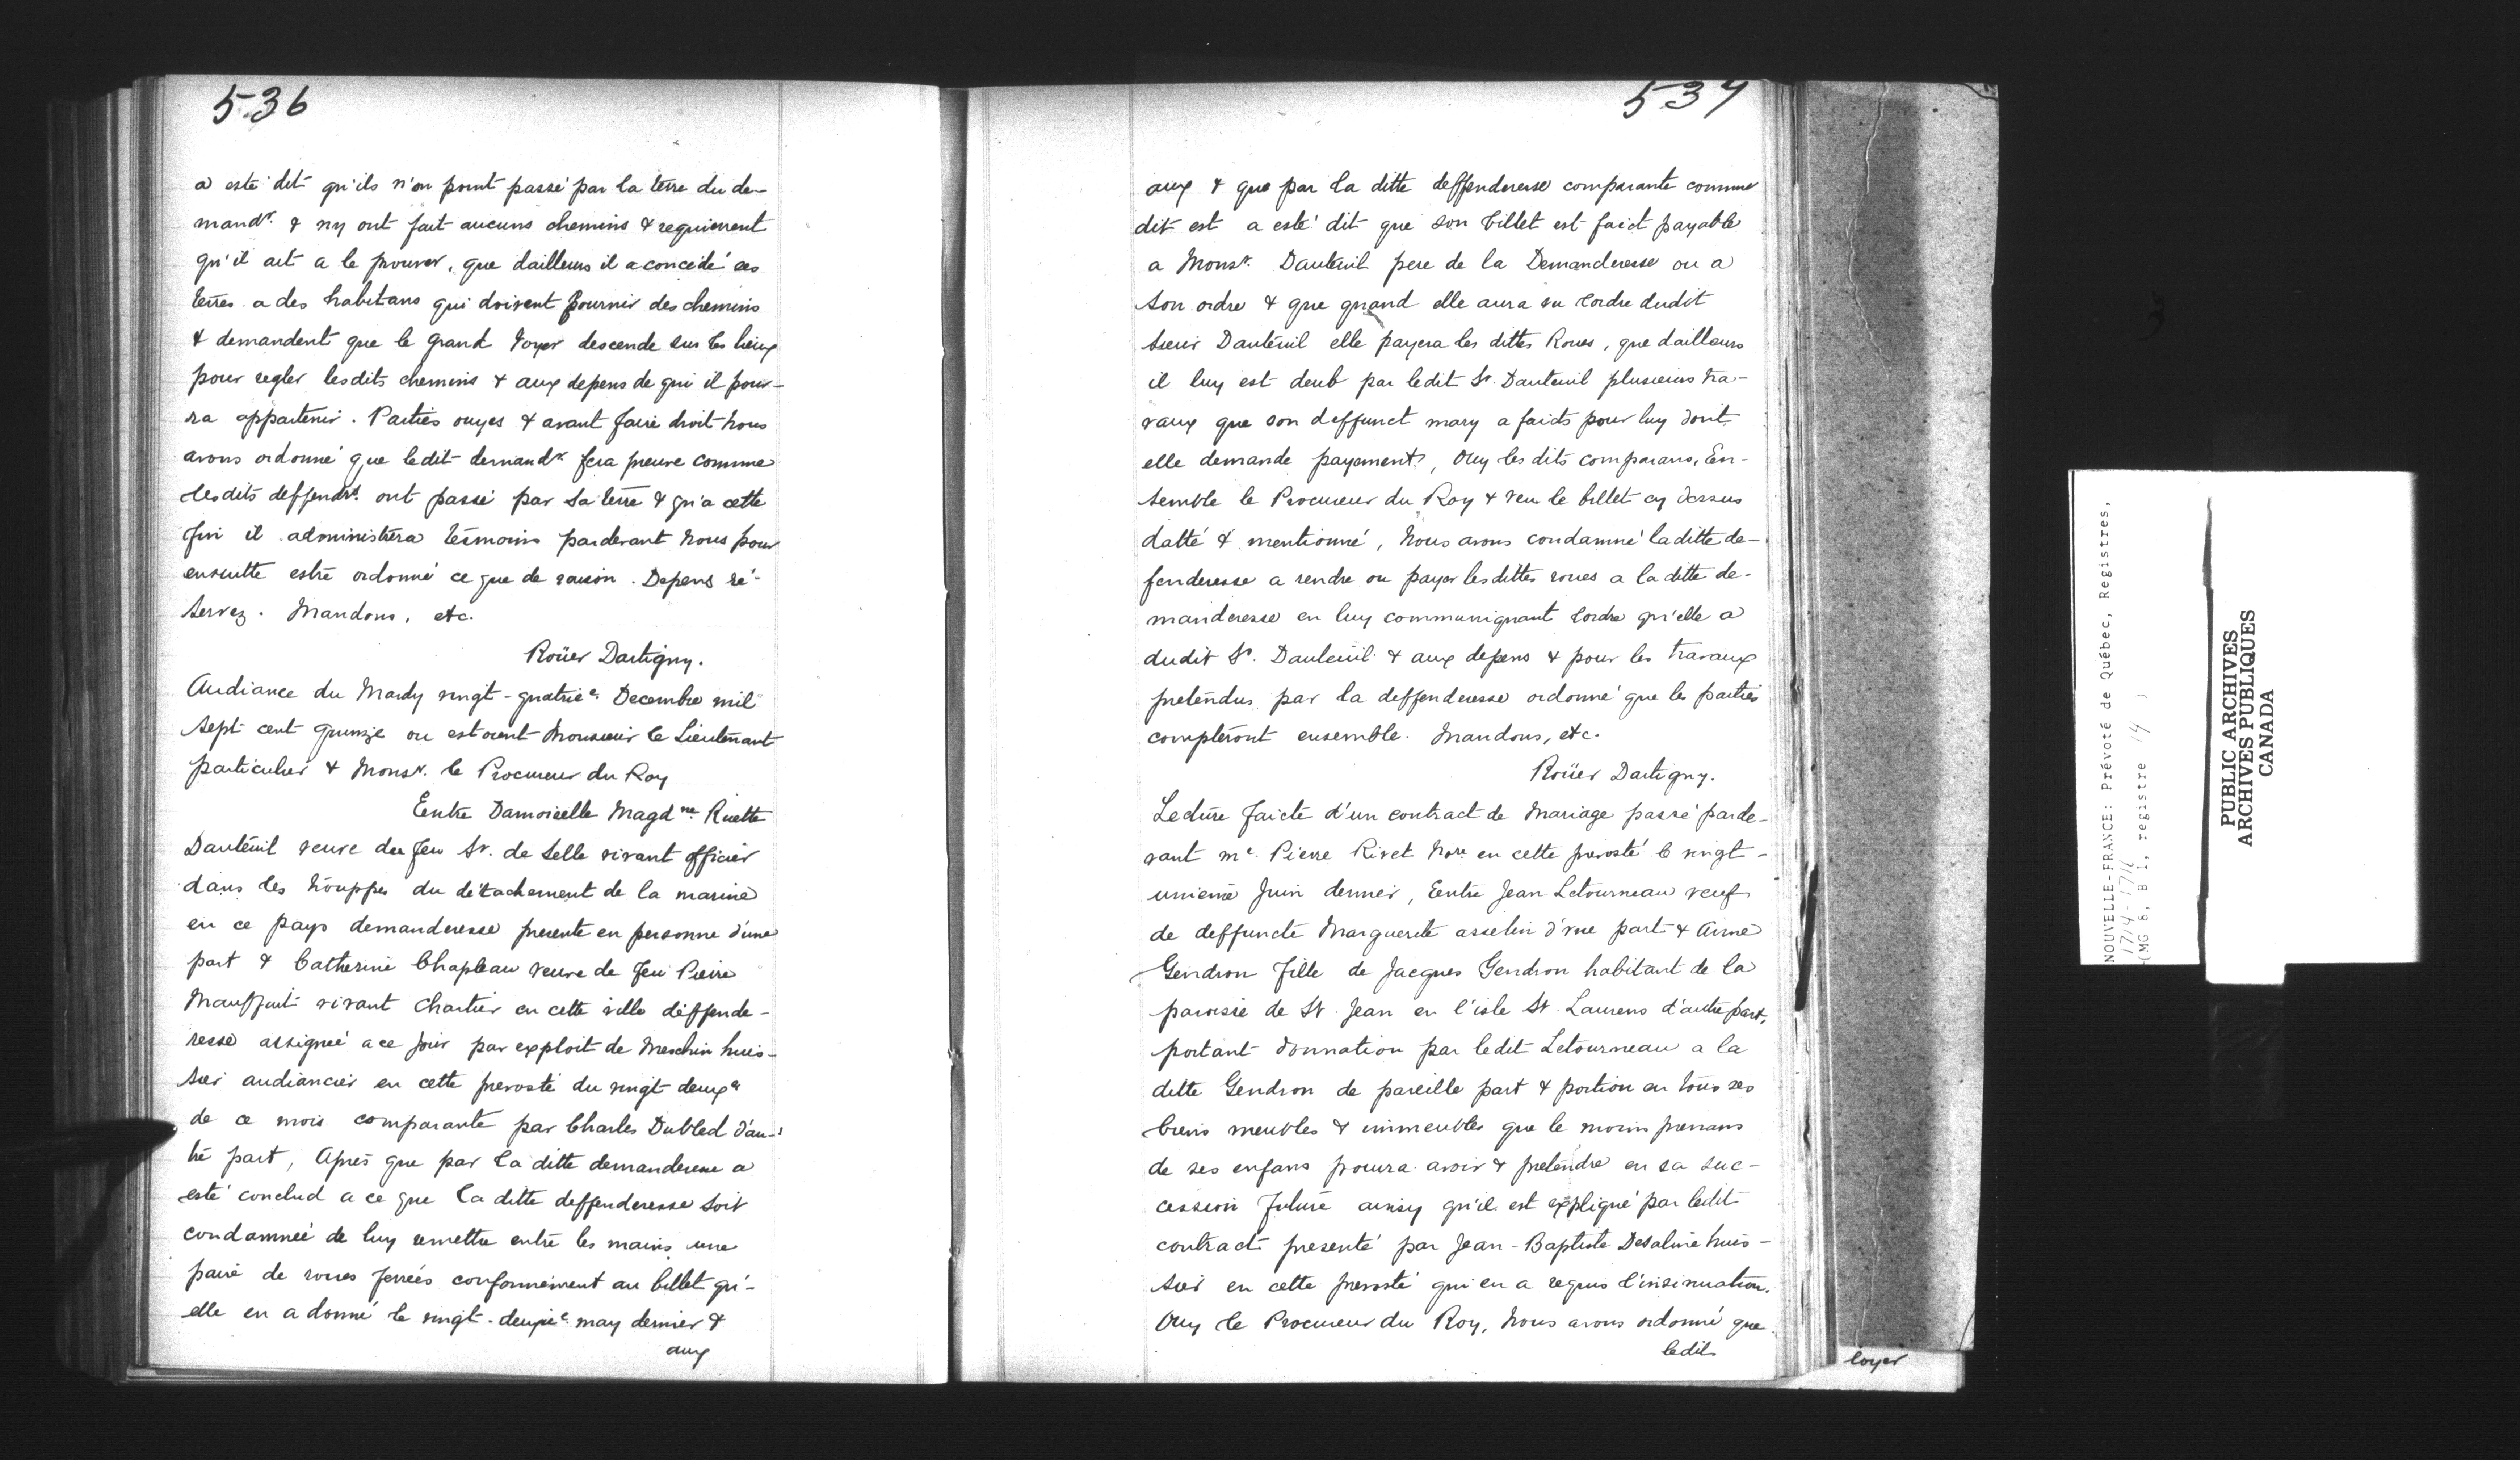 536
a esté dit qu'ils n'on point passé par la terre du de-
mandr. & ny ont fait aucuns chemins & requierent
qu'il ait a le prouver, que dailleurs il a concédé ces
terres a des habitans qui doivent fournir des chemins
& demandent que le grand Voyer descende sur les lieux
pour regler lesdits chemins & aux depens de qui il pour-
ra appartenir. Parties ouyes & avant faire droit nous
avons ordonné que ledit demandr. fera preuve comme
lesdits deffendrs. ont passé par sa terre & qu'a cette
fin il administrera tesmoins pardevant nous pour
ensuitte estre ordonné ce que de raison. Depens ré-
servez. Mandons, etc.
Roüer Dartigny.
Audiance du Mardy vingt-quatrie. Decembre mil
sept cent quinze ou estoient Monsieur le Lieutenant
particulier & Monsr. le Procureur du Roy
Entre Damoiselle Magdne. Ruette
Dauteüil veuve du feu Sr. de Selle vivant officier
dans les trouppes du détachement de la marine
en ce pays demanderesse presente en personne d'une
part & Catherine Chapleau veuve de feu Pierre
Mauffait vivant Chartier en cette ville deffende-
resse assignée a ce jour par exploit de Meschin huis-
sier audiancier en cette prevosté du vingt deuxe
de ce mois comparante par Charles Dubled d'au-
tre part, Après que par la ditte demanderesse a
esté conclud a ce que la ditte deffenderesse soit
condamnée de luy remettre entre les mains une
paire de roues ferrées conformément au billet qu'-
elle en a donné le vingt-deuxie. may dernier &
aux
537
aux & que par la ditte deffenderesse comparante comme
dit est a esté dit que son billet est faict payable
a Monsr. Dauteuil pere de la Demanderesse ou a
son ordre & que quand elle aura eu l'ordre dudit
sieur Dauteüil elle payera les dittes Roues, que dailleurs
il luy est deub par ledit Sr. Dauteuil plusieurs tra-
vaux que son deffunct mary a faicts pour luy dont
elle demande payement, Ouy les dits comparans, En-
semble le Procureur du Roy & veu le billet cy dessus
datté & mentionné, Nous avons condamné la ditte de-
fenderesse a rendre ou payer les dittes roues a la ditte de-
manderesse en luy communiquant l'ordre qu'elle a
dudit Sr. Dauteüil & aux depens & pour les travaux
pretendus par la deffenderesse ordonné que les parties
compteront ensemble. Mandons, etc.
Roüer Dartigny.
Lecture faicte d'un contract de Mariage passé parde-
vant me. Pierre Rivet Nore. en cette prevosté le vingt-
unieme Juin dernier, Entre Jean Letourneau veuf
de deffuncte Marguerite asselin d'une part & Anne
Gendron fille de Jacques Gendron habitant de la
paroisse de St. Jean en l'isle St. Laurens d'autre part,
portant donnation par ledit Letourneau a la
ditte Gendron de pareille part & portion en tous ses
biens meubles & immeubles que le moins prenans
de ses enfans poura avoir & pretendre en sa suc-
cession future ainsy qu'il est expliqué par ledit
contract presenté par Jean-Baptiste Desaline huis-
sier en cette prevosté qui en a requis l'insinuation.
Ouy le Procureur du Roy, Nous avons ordonné que
ledit
loyer
NOUVELLE-FRANCE: Prévoté de Québec, Registres,
1714-1716
(MG 8, B 1, registre 14 )
PUBLIC ARCHIVES
ARCHIVES PUBLIQUES
CANADA